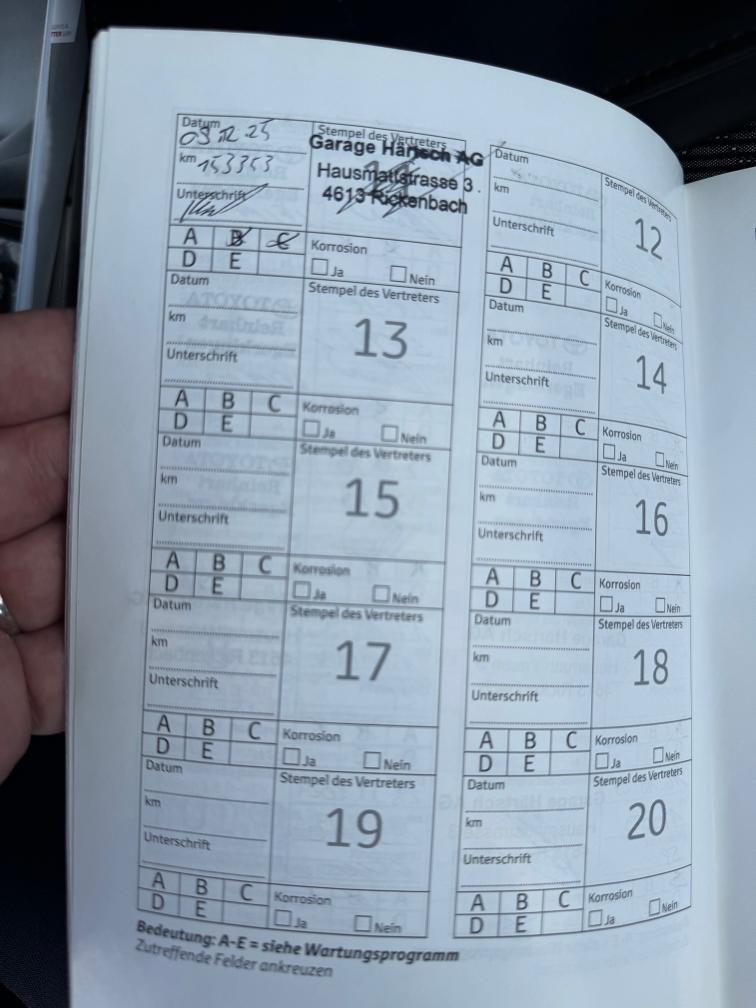 Datum
03.12.25
km 153353
Unterschrift
Stempel des Vertreters
Garage Härtsch AG
Hausmattstrasse 3
4613 Rickenbach
A B C
D E
Korrosion
Ja Nein
Datum
km
Unterschrift
Stempel des Vertreters
12
A B C
D E
Korrosion
Ja Nein
Datum
km
Unterschrift
Stempel des Vertreters
13
A B C
D E
Korrosion
Ja Nein
Datum
km
Unterschrift
Stempel des Vertreters
14
A B C
D E
Korrosion
Ja Nein
Datum
km
Unterschrift
Stempel des Vertreters
15
A B C
D E
Korrosion
Ja Nein
Datum
km
Unterschrift
Stempel des Vertreters
16
A B C
D E
Korrosion
Ja Nein
Datum
km
Unterschrift
Stempel des Vertreters
17
A B C
D E
Korrosion
Ja Nein
Datum
km
Unterschrift
Stempel des Vertreters
18
A B C
D E
Korrosion
Ja Nein
Datum
km
Unterschrift
Stempel des Vertreters
19
A B C
D E
Korrosion
Ja Nein
Datum
km
Unterschrift
Stempel des Vertreters
20
A B C
D E
Korrosion
Ja Nein
Bedeutung: A-E = siehe Wartungsprogramm
Zutreffende Felder ankreuzen